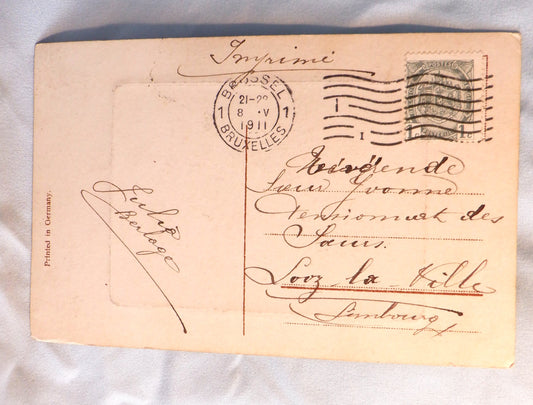 Imprimé
BRUSSEL
1 21-22 1
8 V
1911
BRUXELLES
I
I
POSTES
1 1
Révérende
Sœur Yvonne
Pensionnat des
Sœurs.
Looz-la-Ville
Limbourg
Julie
Berlage
Printed in Germany.